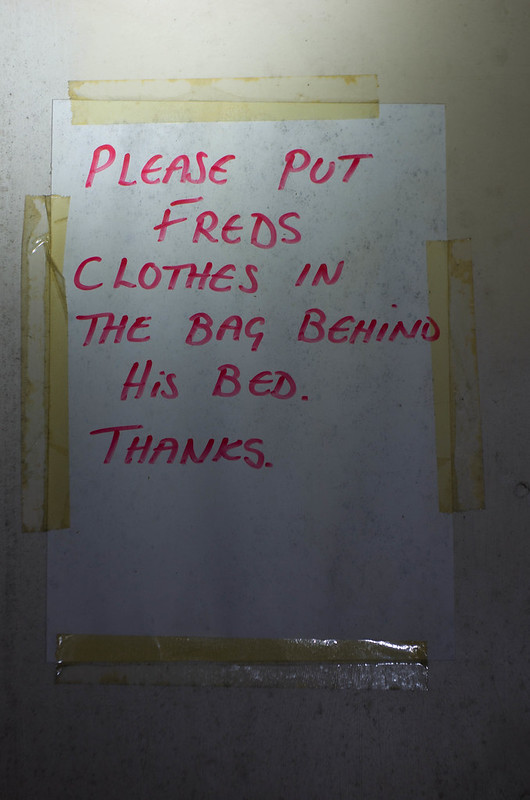 PLEASE PUT
FREDS
CLOTHES IN
THE BAG BEHIND
HiS BED.
THANKS.